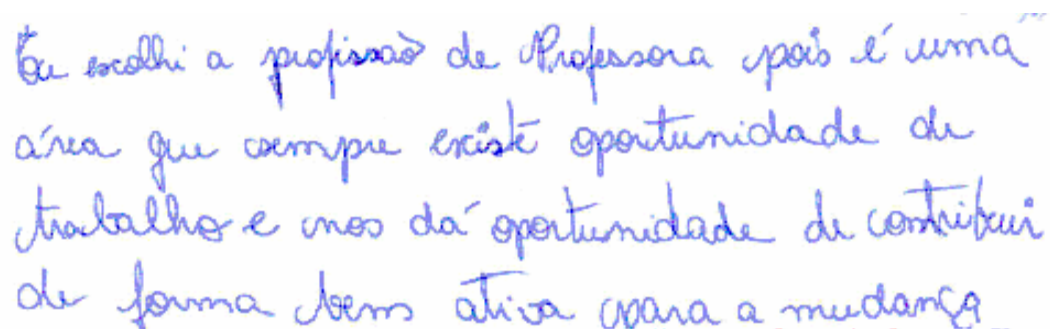 Eu escolhi a profissão de Professora pois é uma
área que sempre existe oportunidade de
trabalho e nos dá oportunidade de contribuir
de forma bem ativa para a mudança